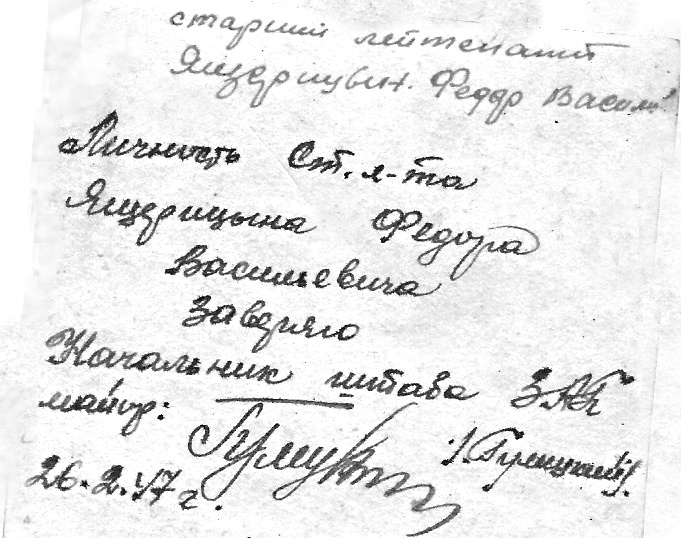 старший лейтенант
Ящерицын. Федор Васил
Личность Ст. л-та
Ящерицына Федора
Васильевича
Заверяю
Начальник штаба ЗАП
майор:
26.2.47 г.